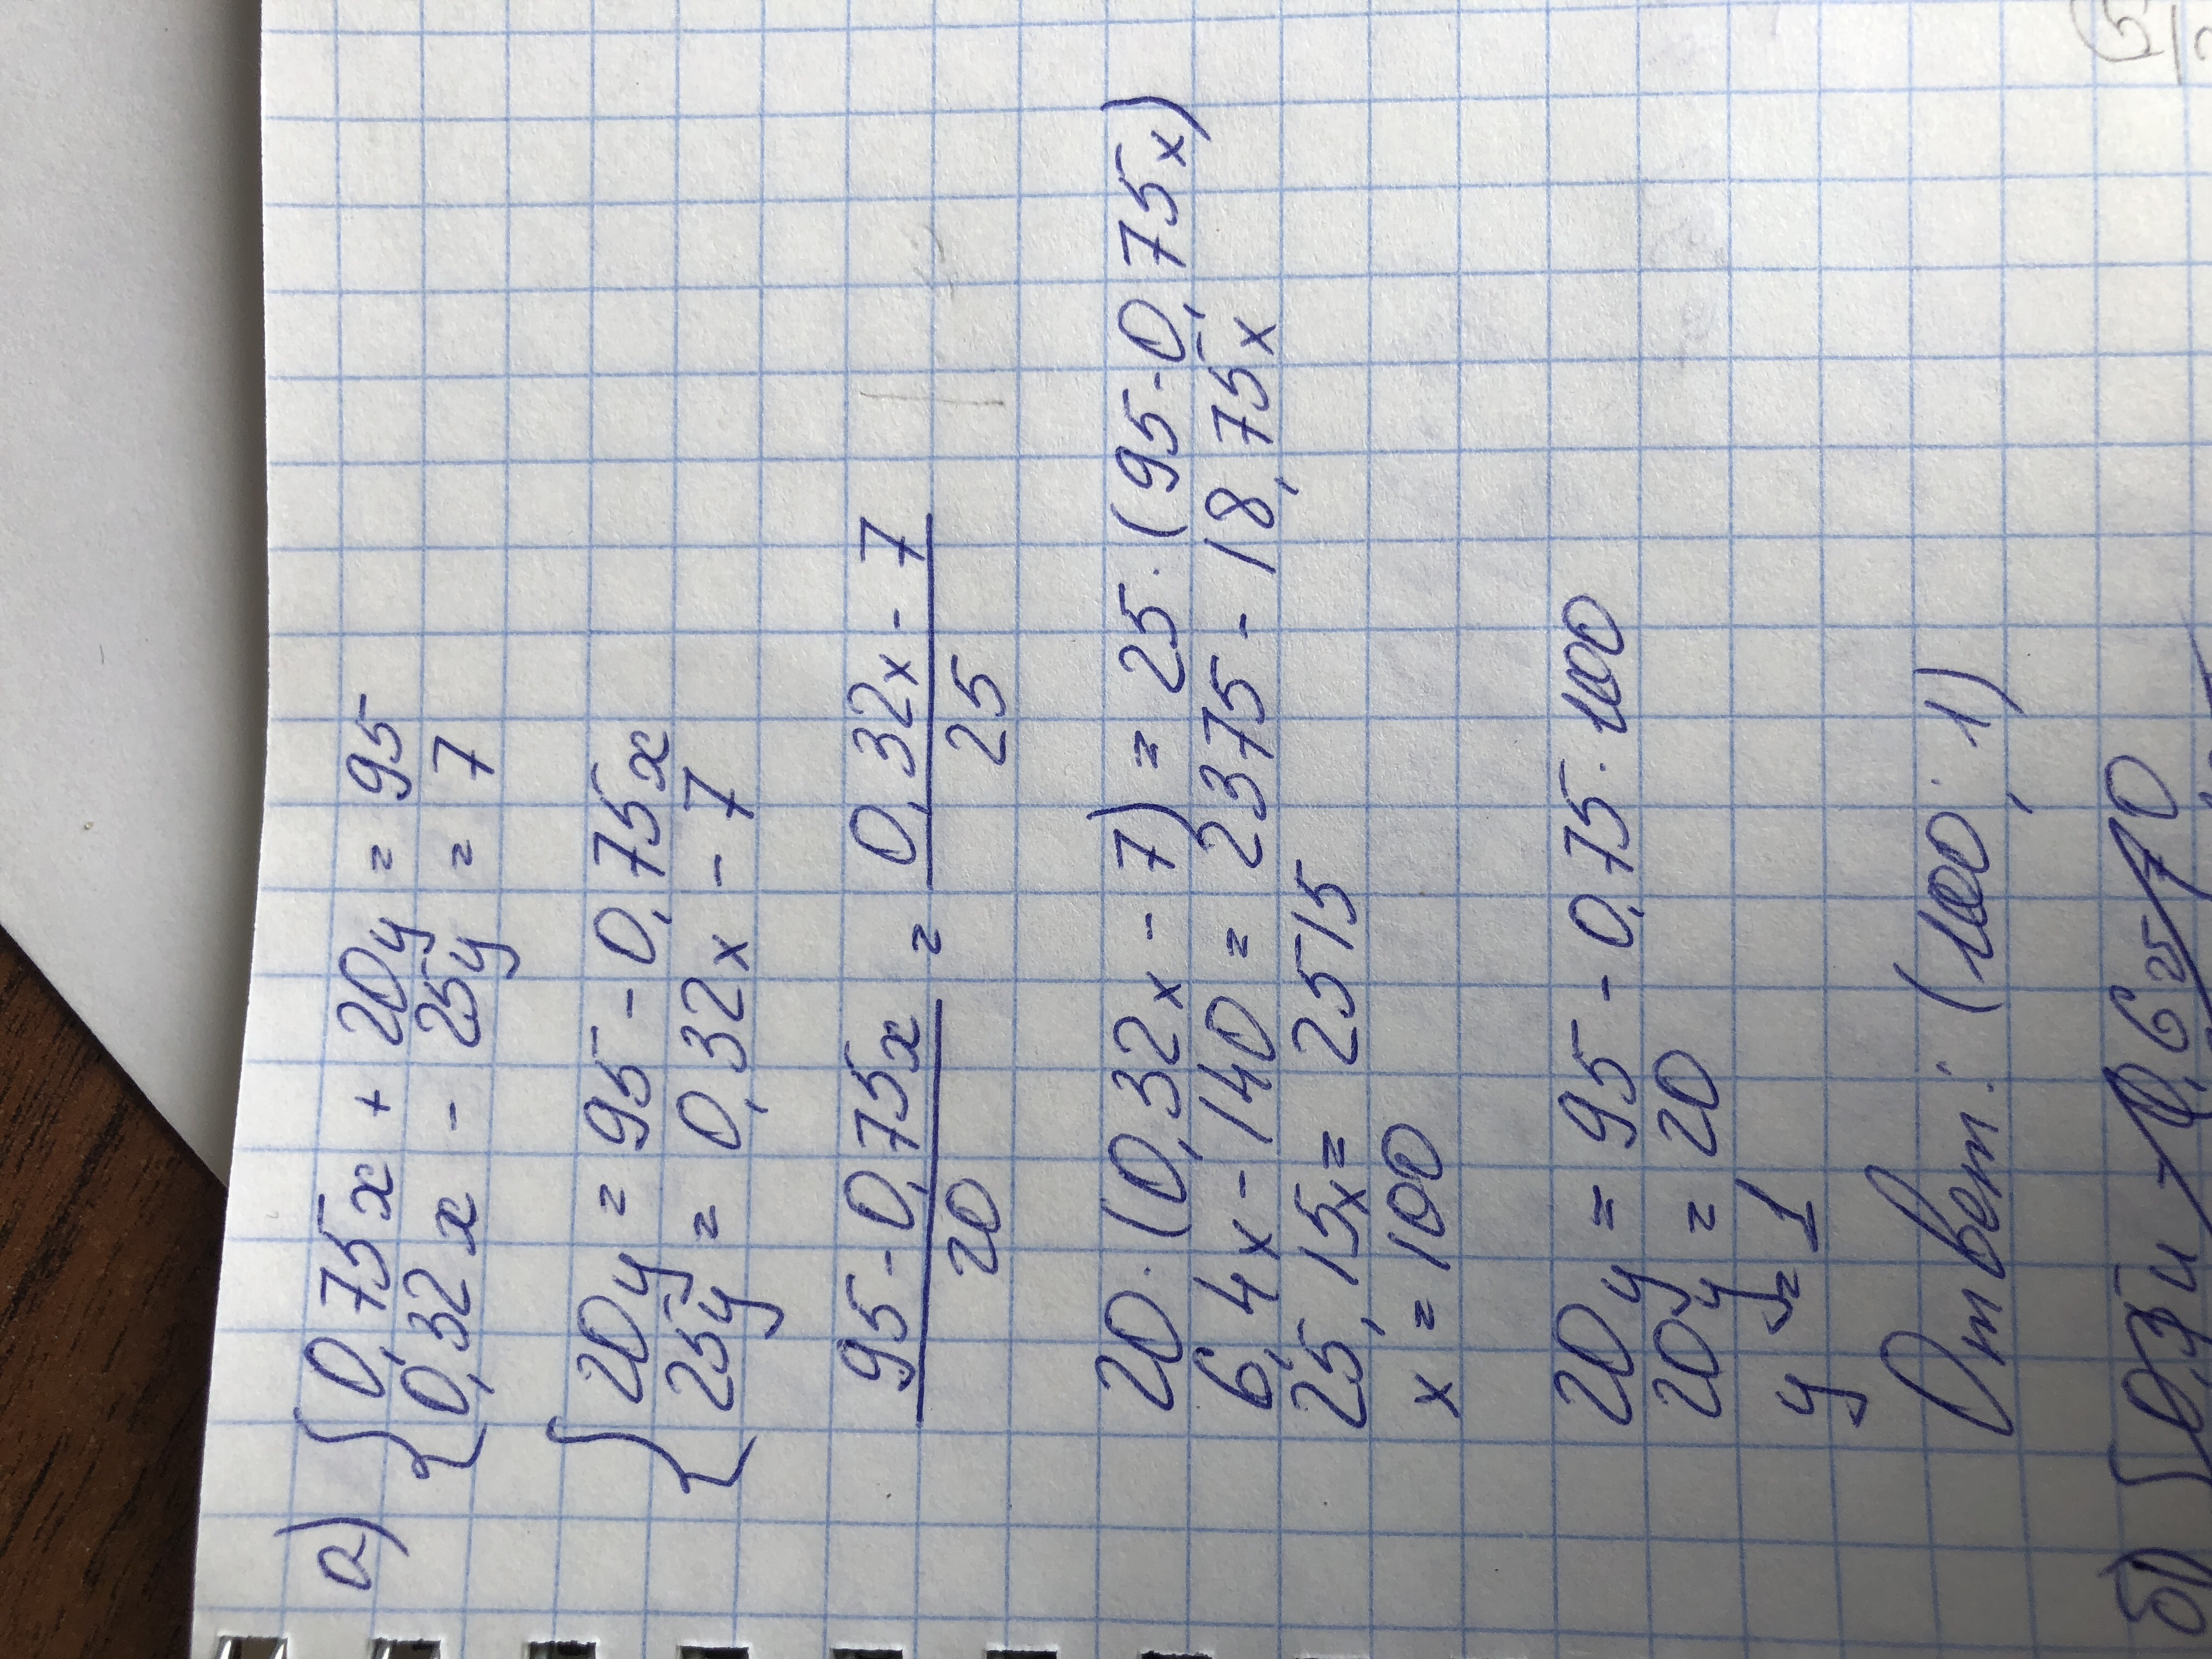 а) { 0,75x + 20y = 95
0,32x - 25y = 7
{ 20y = 95 - 0,75x
25y = 0,32x - 7
95 - 0,75x / 20 = 0,32x - 7 / 25
20 · (0,32x - 7) = 25 · (95 - 0,75x)
6,4x - 140 = 2375 - 18,75x
25,15x = 2515
x = 100
20y = 95 - 0,75 · 100
20y = 20
y = 1
Ответ: (100; 1)
б) {